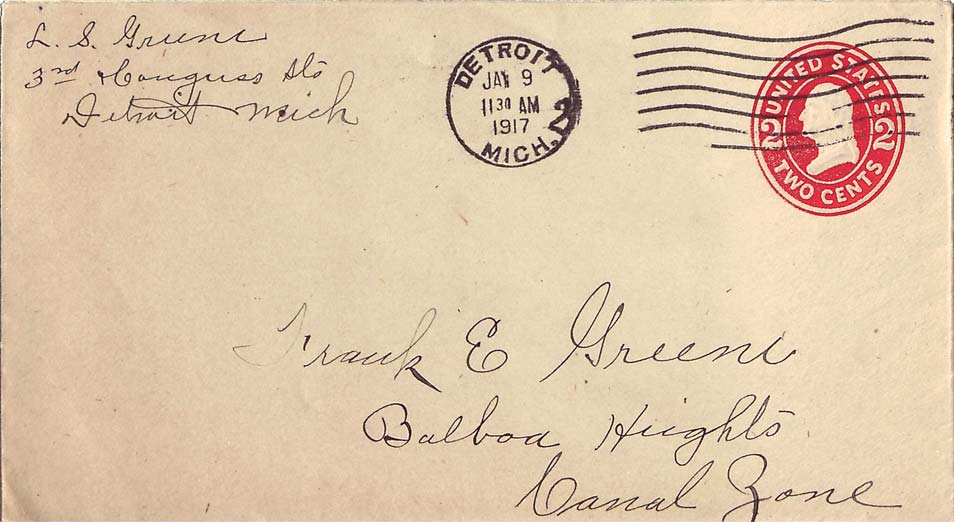 L. S. Greene
3rd & Congress Sts
Detroit Mich
DETROIT
JAN 9
11 30 AM
1917
MICH.
2
UNITED STATES
2 2
TWO CENTS
Frank E Greene
Balboa Heights
Canal Zone